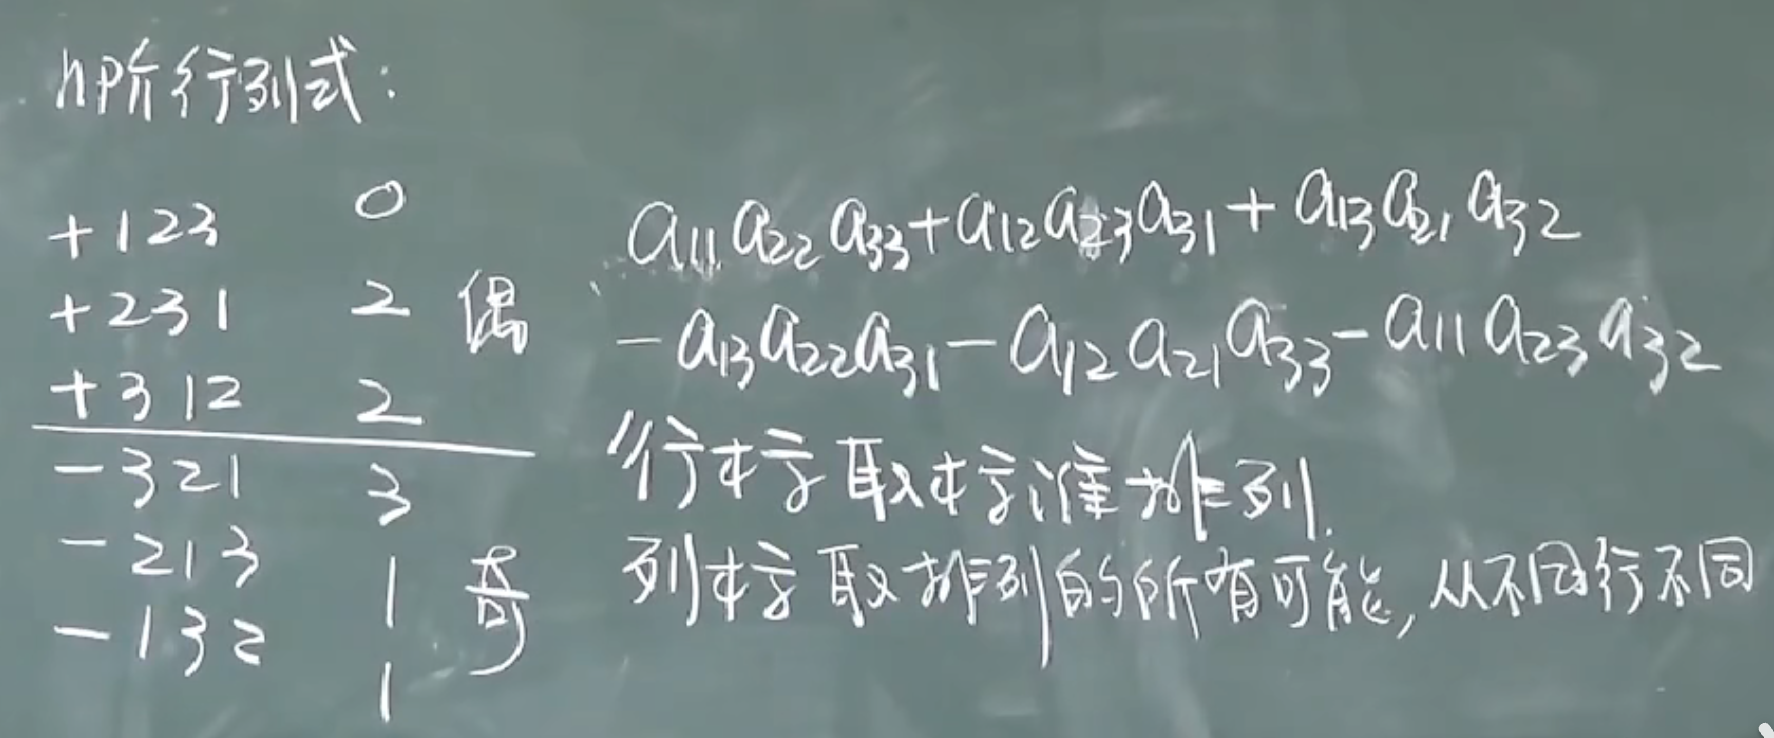 n阶行列式:
+123 0
+231 2 偶
+312 2
-321 3
-213 1 奇
-132 1
a₁₁a₂₂a₃₃+a₁₂a₂₃a₃₁+a₁₃a₂₁a₃₂
-a₁₃a₂₂a₃₁-a₁₂a₂₁a₃₃-a₁₁a₂₃a₃₂
行标取标准排列.
列标取排列的所有可能,从不同行不同